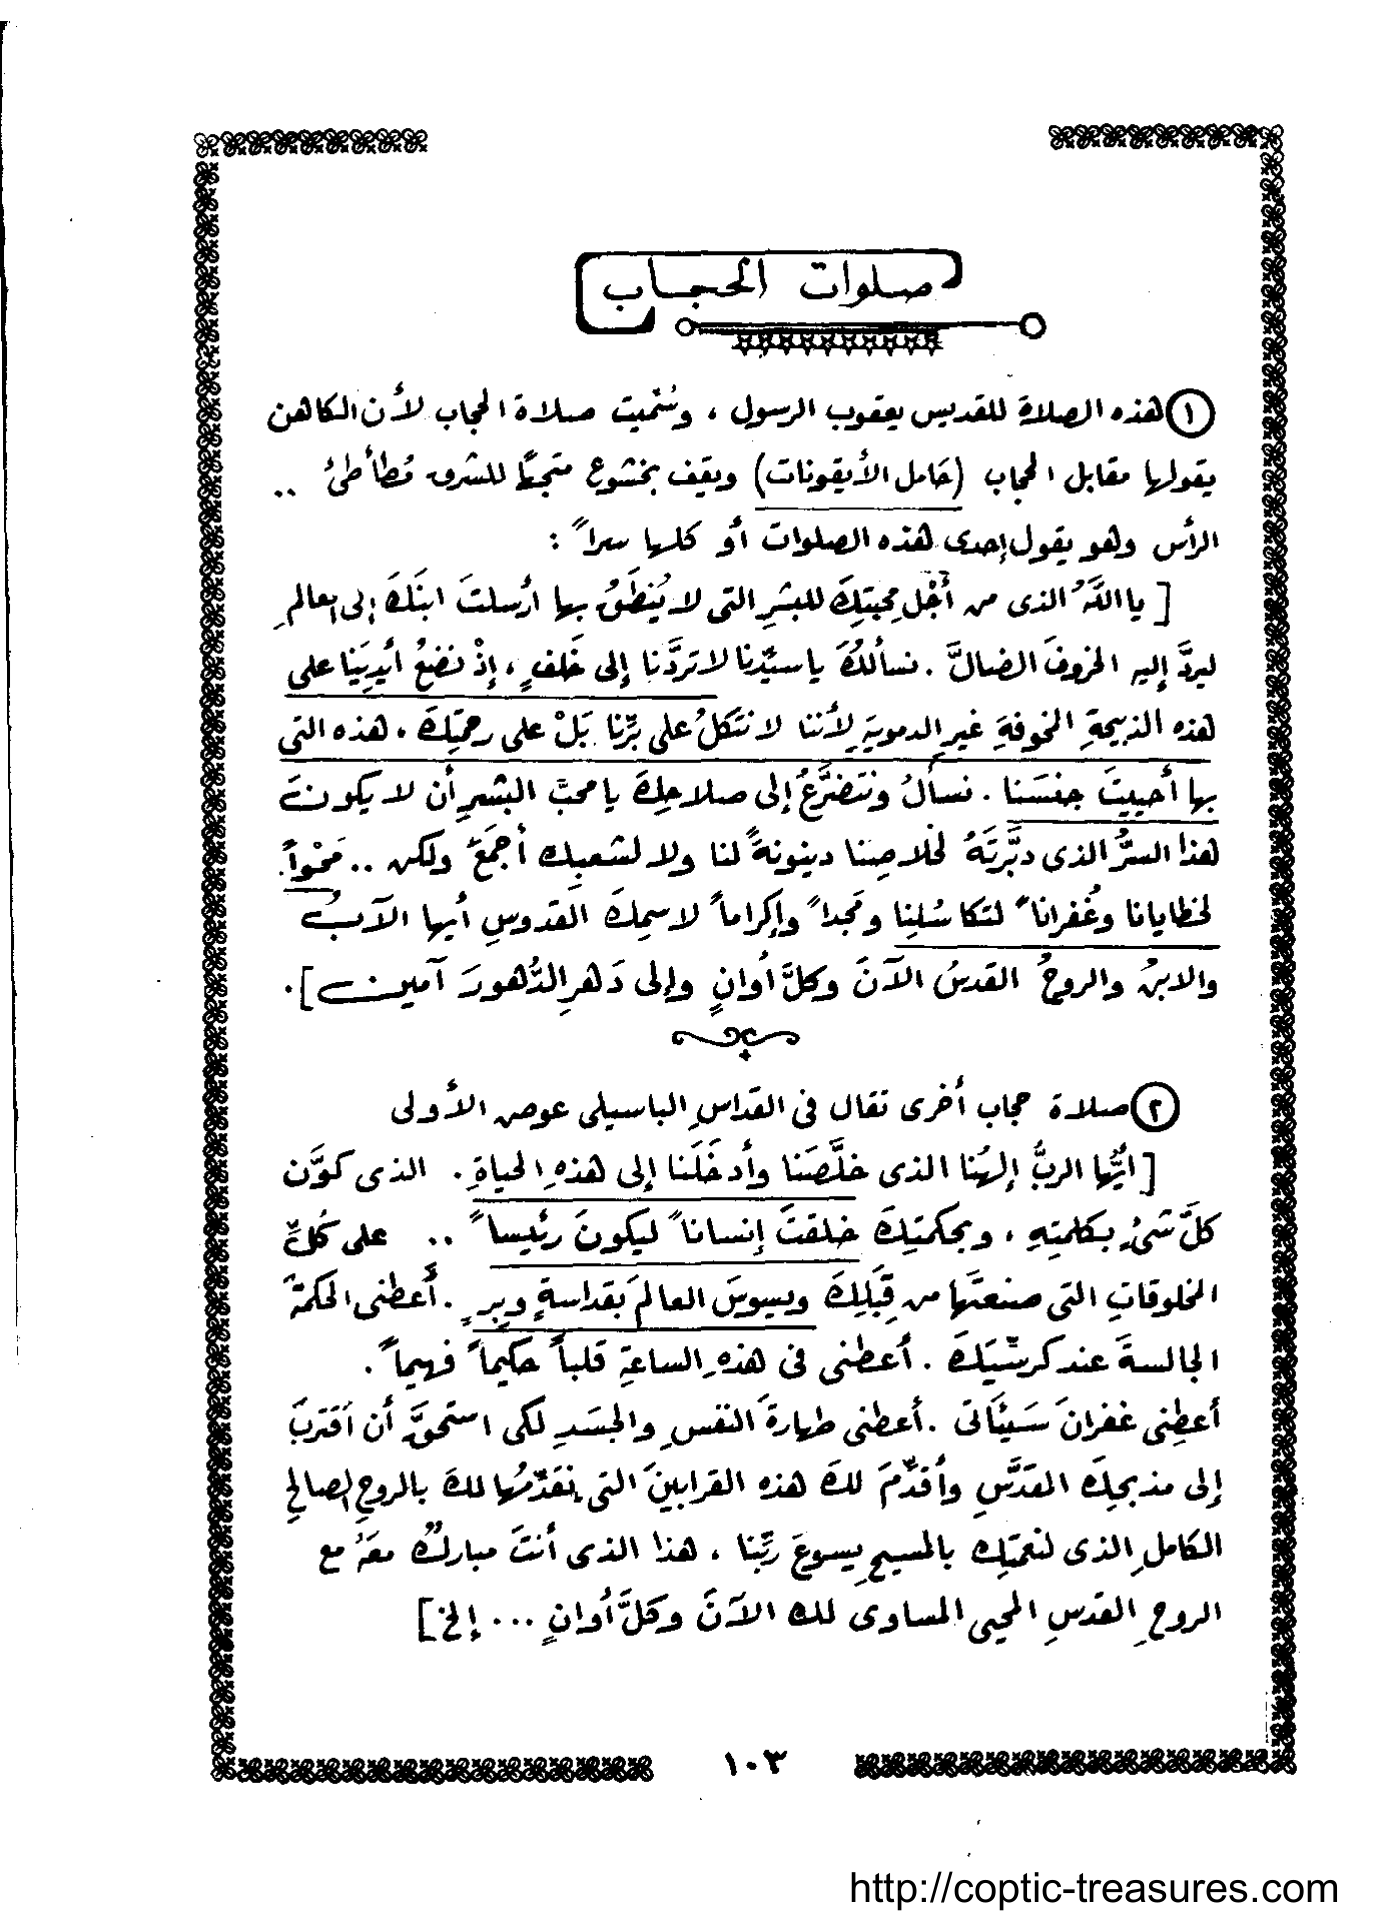 صلوات الحجاب
① هذه الصلاة للقديس يعقوب الرسول ، وسُمّيت صلاة الحجاب لأن الكاهن
يقولها مقابل الحجاب (حَامل الأيقونات) ويقف بخشوع متجهًا للشرق مُطأطئُ ..
الرأس وهو يقول إحدى هذه الصلوات أو كلها سراً :
[ يا اللَّهُ الذى من أَجْلِ محبتِكَ للبشرِ التى لا يُنطَقُ بها أرسلتَ ابنَكَ إلى العالمِ
ليردَّ إليه الخروفَ الضالَّ . نسألُكَ يا سيّدنا لا تردَّنا إلى خَلفٍ ، إذْ نضعُ أيدِيَنا على
هذه الذبيحةِ المخوفةِ غيرِ الدمويةِ لأننا لا نتكلُ على برِّنا بَلْ على رحمتِكَ ، هذه التى
بها أحييتَ جنسَنا . نسألُ ونتضرَّعُ إلى صلاحِكَ يا محبَّ البشرِ أن لا يكونَ
هذا السرُّ الذى دبَّرتَهُ لخلاصِنا دينونةً لنا ولا لشعبِك أجمعَ ولكن .. مَحْواً
لخطايانا وغُفراناً لتكاسُلِنا ومَجداً وإكراماً لاسمِكَ القدوسِ أيها الآبُ
والابنُ والروحُ القدسُ الآنَ وكلَّ أوانٍ وإلى دَهرِ الدُّهورَ آمين ] .
② صلاة حجاب أخرى تقال فى القداسِ الباسيلى عوض الأولى
[ ايُّها الربُّ إلهُنا الذى خلَّصَنا وأدخَلَنا إلى هذهِ الحياةِ . الذى كوَّن
كلَّ شئٍ بكلمتِهِ ، وبحكمتِكَ خلقتَ إنساناً ليكونَ رئيساً .. على كُلِّ
المخلوقاتِ التى صنعتَها من قِبَلِكَ ويسوسَ العالمَ بقداسةٍ وبِرٍ . أَعطنى الحكمةَ
الجالسةَ عند كرسّيِكَ . أعطنى فى هذهِ الساعةِ قلباً حكيماً فهيماً .
أعطِنى غفرانَ سَيئاتى . أعطنى طهارةَ النفسِ والجسَدِ لكى استحقَّ أن أقتربَ
إلى مذبحِكَ المقدَّسِ وأقدِّمَ لكَ هذه القرابينَ التى نقدِّمُها لكَ بالروحِ الصالحِ
الكاملِ الذى لنعمتِك بالمسيحِ يسوعَ ربِّنا ، هذا الذى أنتَ مباركٌ معهُ مع
الروحِ القدسِ المحيى المساوى لك الآنَ وكلَّ أوانٍ ... إلخ ]
١٠٣
http://coptic-treasures.com